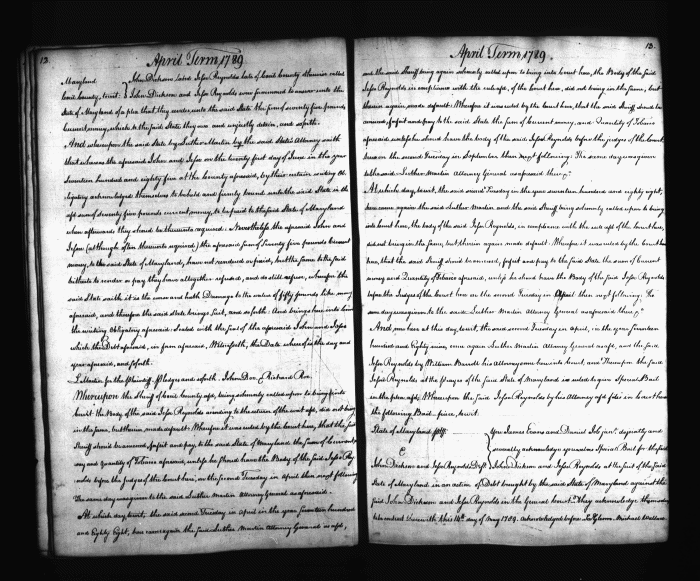 12.
April Term, 1789
Maryland
Cecil County, to wit:
John Dickson and Jesse Reynolds late of Cecil County otherwise called
John Dickson and Jesse Reynolds was summoned to answer unto the
State of Maryland of a plea that they render unto the said State the sum of seventy five pounds
current money, which to the said State they owe and unjustly detain, and soforth.
And whereupon the said State by Luther Martin by the said State's Attorney saith
that whereas the aforesaid John and Jesse on the twenty first day of June in the year
Seventeen hundred and eighty five at the county aforesaid, by their certain writing Ob
ligatory acknowledged themselves to be held and firmly bound unto the said State in the
afd sum of seventy five pounds current money, to be paid to the said State of Maryland
when afterwards they should be thereunto required: Nevertheless the aforesaid John and
Jesse (although often thereunto required) the aforesaid sum of Seventy five pounds current
money, to the said State of Maryland, have not rendered or paid, but the same to the said
hitherto to render or pay they have altogether refused, and do still refuse, wherefore the
said State saith it is the worse and hath Damage to the value of fifty pounds like money
aforesaid, and therefore the said State brings suit, and soforth: And brings here into Court
the writing Obligatory aforesaid: Sealed with the seal of the aforesaid John and Jesse
which the Debt aforesaid, in form aforesaid, Witnesseth, the Date whereof is the day and
year aforesaid, and soforth.
L. Martin for the plaintiff. Pledges and soforth. John Doe & Richard Roe
Whereupon the Sheriff of Cecil County afd, being solemnly called upon to bring into
Court the Body of the said Jesse Reynolds according to the return of the writ afd, did not bring
in the same, but therein, made default: Wherefore it was ruled by the court here, that the said
Sheriff should be amerced, forfeit and pay to the said State of Maryland the sum of Current mo
ney and quantity of Tobacco aforesaid, unless he should have the Body of the said Jesse Rey
nolds before the judges of the court here, on the second Tuesday in April then next following
The same day was given to the said Luther Martin Attorney General as aforesaid.
At which day, to wit, the said second Tuesday in April in the year Seventeen hundred
and Eighty Eight, here came again the said Luther Martin Attorney General as afd,
13.
April Term, 1789.
and the said Sheriff being again solemnly called upon to bring into Court here, the Body of the said
Jesse Reynolds in compliance with the rule afd, of the Court here, did not bring in the same, but
therein again, made default: Wherefore it was ruled by the Court here, that the said Sheriff should be
amerced, forfeit and pay to the said State the sum of Current money, and Quantity of Tobacco
aforesaid unless he should have the body of the said Jesse Reynolds before the judges of the court
here on the second Tuesday in September then next following: The same day was given
to the said Luther Martin Attorney General as aforesaid there &c.
At which day, to wit, the said second Tuesday in the year seventeen hundred and eighty eight,
here came again the said Luther Martin and the said Sheriff being solemnly called upon to bring
into Court here, the body of the said Jesse Reynolds, in compliance with the rule afd of the Court here,
did not bring in the same, but therein again made default: Wherefore it was ruled by the Court
here, that the said Sheriff should be amerced, forfeit and pay to the said State the sum of Current
money and Quantity of Tobacco aforesaid, unless he should have the Body of the said Jesse Reynolds
before the Judges of the Court here on the second Tuesday in April then next following. The
same day was given to the said Luther Martin Attorney General as aforesaid there &c.
And now here at this day, to wit, the said second Tuesday in April, in the year seventeen
hundred and Eighty nine, came again Luther Martin Attorney General as afd, and the said
Jesse Reynolds by William his Attorney came here into Court, and Thereupon the said
Jesse Reynolds at the prayer of the said State of Maryland is ruled to give Special Bail
in the plea afd, & Whereupon the said Jesse Reynolds by his Attorney afd files in Court here
the following Bail-piece, to wit.
State of Maryland
&
John Dickson and Jesse Reynolds Defts
You James Evans and Daniel Job jointly and
severally acknowledge yourselves Special Bail for the said
John Dickson and Jesse Reynolds at the suit of the said
State in an action of Debt brought by the said State of Maryland against the
said John Dickson and Jesse Reynolds in the General Court. They acknowledge themselves
content herewith this 14th day of May 1789. Acknowledged before Michael Wallace